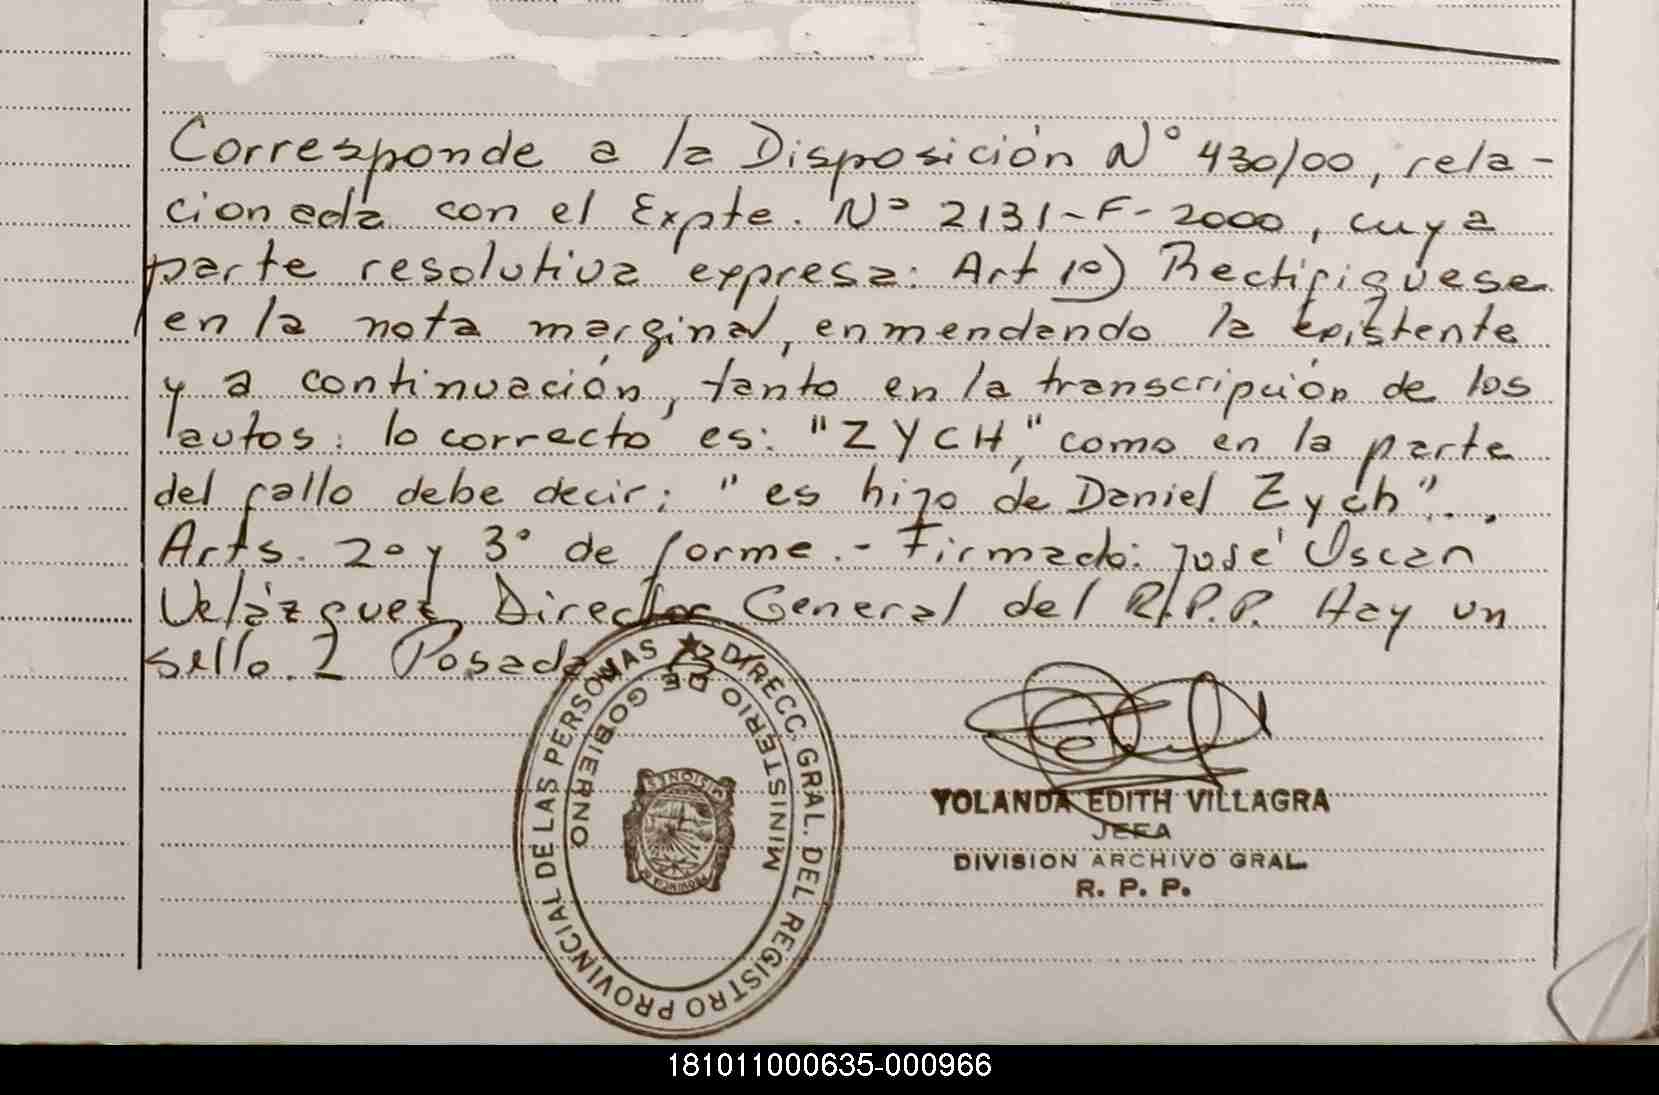 Corresponde a la Disposición Nº 430/00, rela-
cionada con el Expte. Nº 2131-F-2000, cuya
parte resolutiva expresa: Art 1º) Rectifiquese
en la nota marginal, enmendando la existente
y a continuación, tanto en la transcripción de los
autos: lo correcto es: "ZYCH", como en la parte
del fallo debe decir: "es hijo de Daniel Zych"..
Arts. 2º y 3º de forme.- Firmado: José Oscar
Velázquez Director General del R.P.P. Hay un
sello. 2 Posadas
DIRECC. GRAL. DEL REGISTRO PROVINCIAL DE LAS PERSONAS
MINISTERIO DE GOBIERNO
PROVINCIA DE MISIONES
YOLANDA EDITH VILLAGRA
JEFA
DIVISION ARCHIVO GRAL.
R. P. P.
181011000635-000966